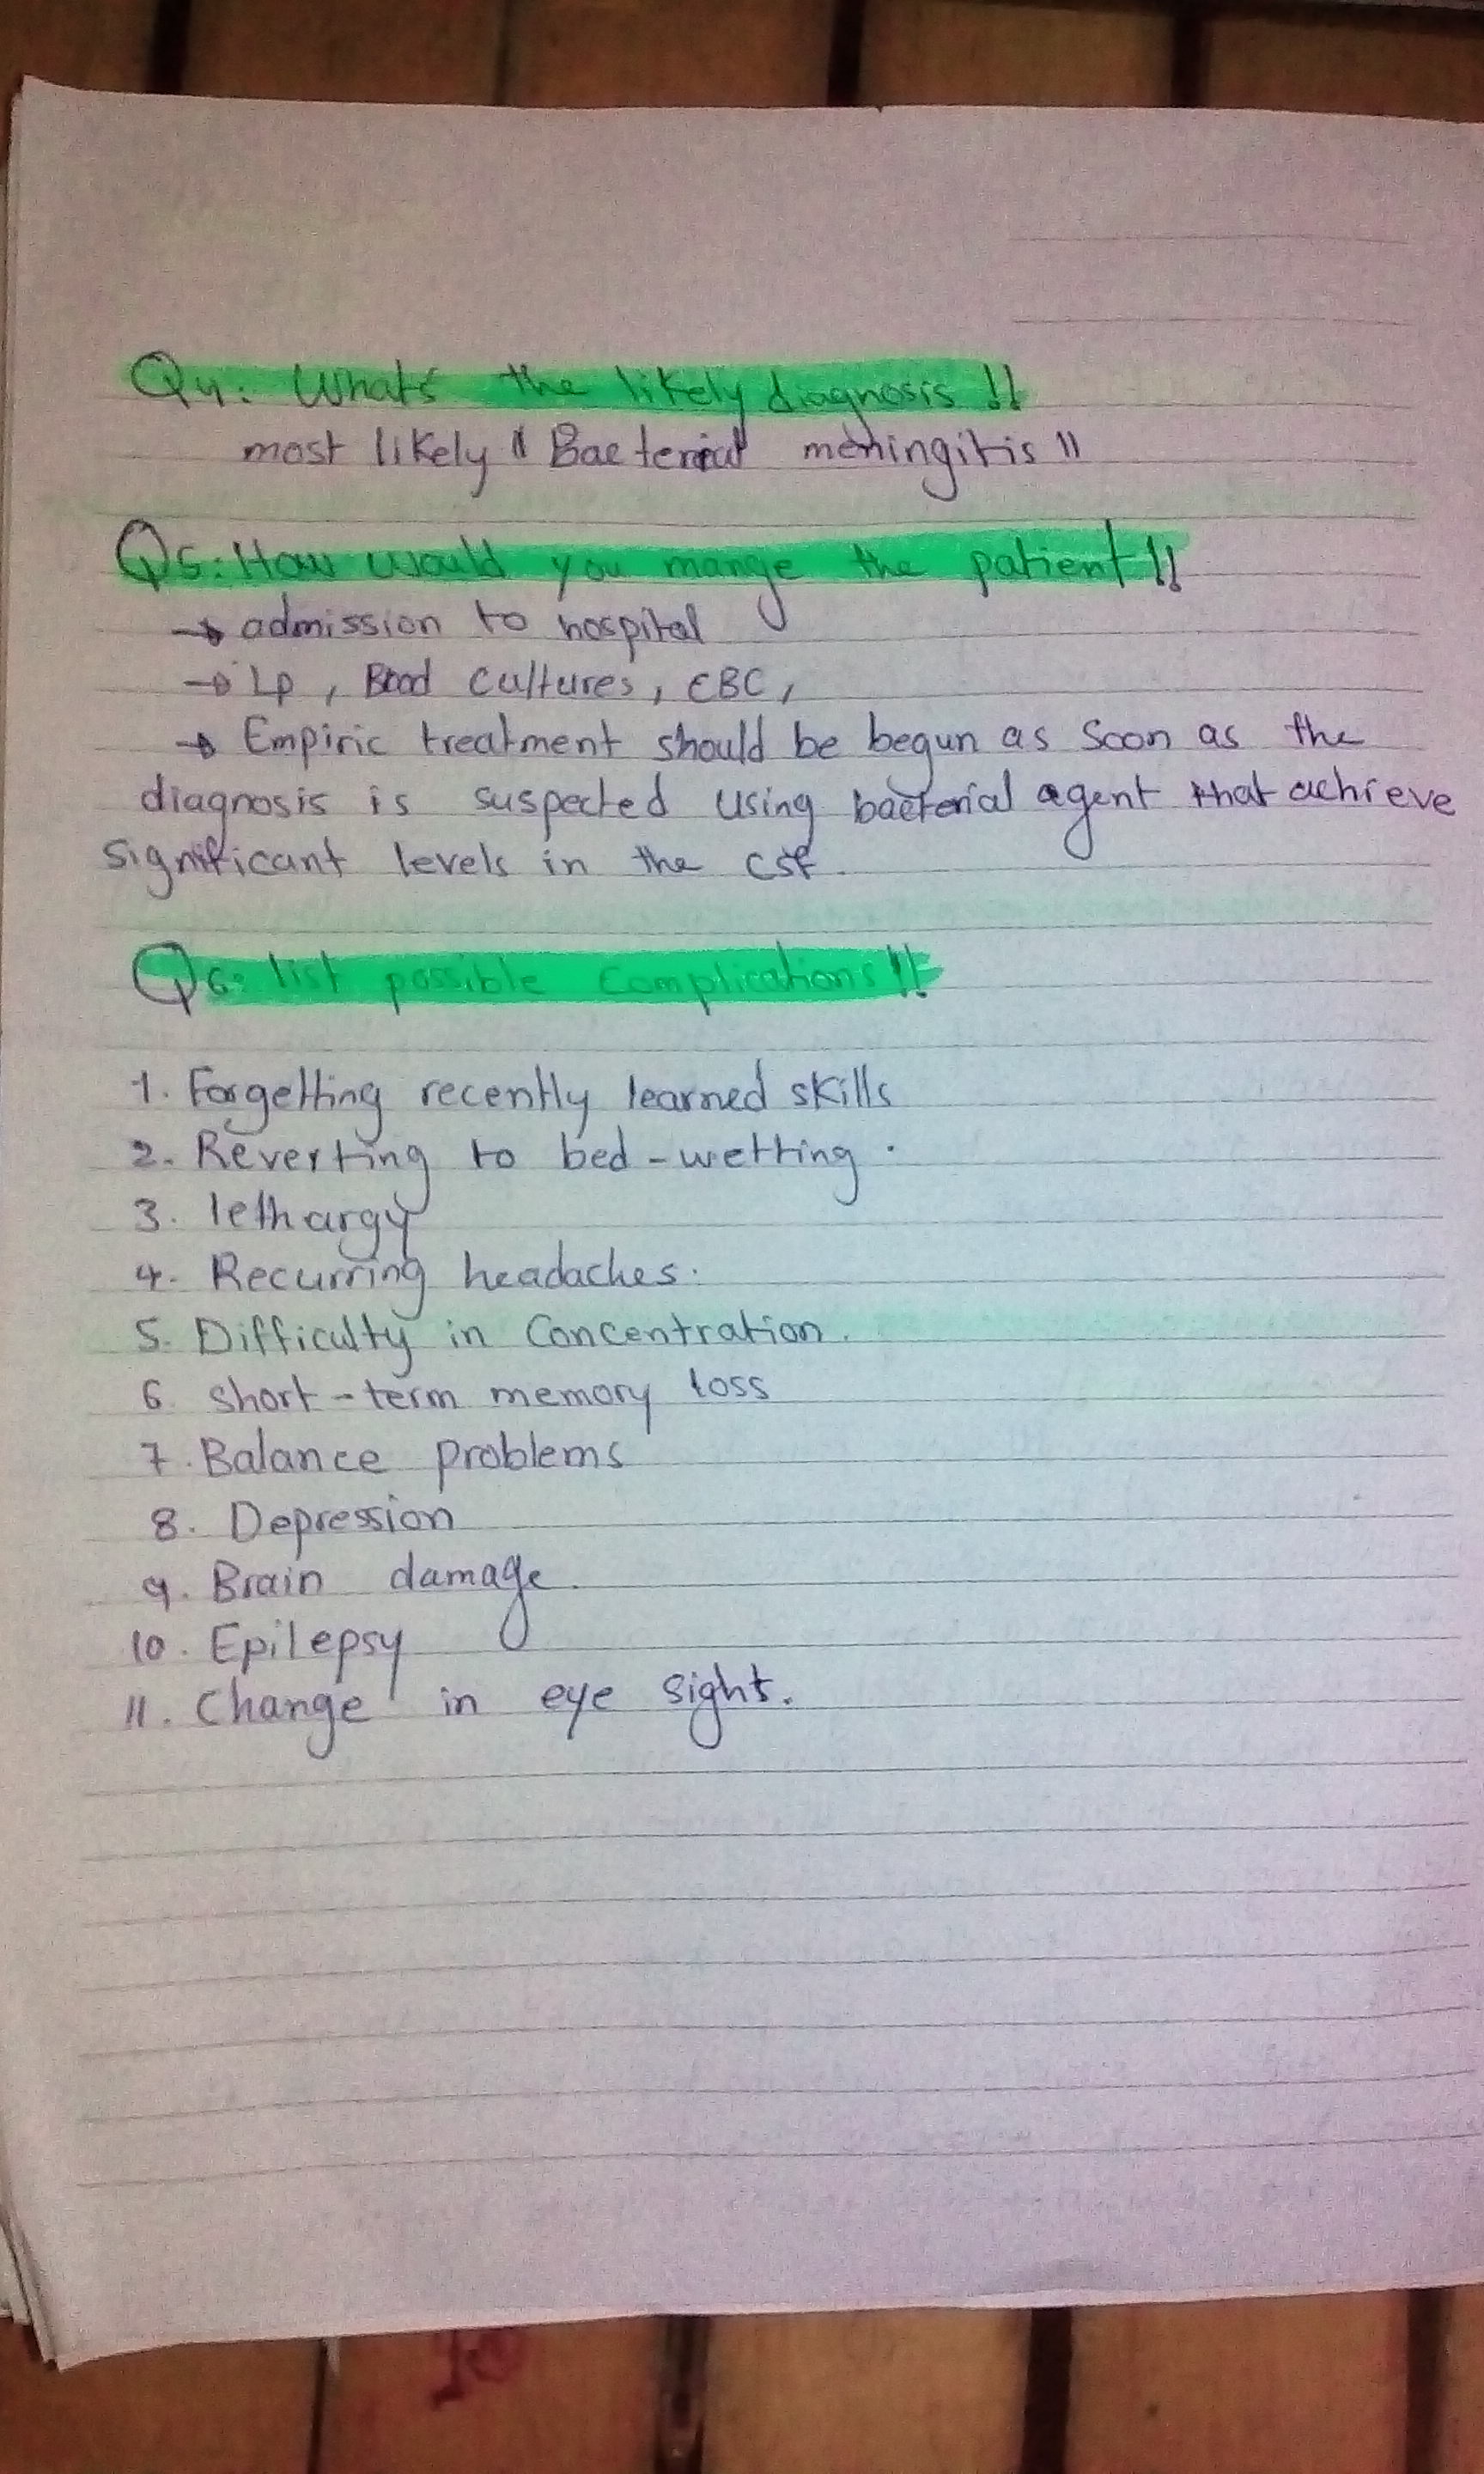 Q4: What's the likely diagnosis !!
most likely Bacterial meningitis !!
Q5: How would you mange the patient !!
→ admission to hospital
→ LP, Blood cultures, CBC,
→ Empiric treatment should be begun as soon as the
diagnosis is suspected using bacterial agent that achieve
significant levels in the CSF.
Q6: list possible complications !!
1. Forgetting recently learned skills
2. Reverting to bed-wetting.
3. lethargy
4. Recurring headaches.
5. Difficulty in Concentration.
6. short-term memory loss
7. Balance problems
8. Depression
9. Brain damage.
10. Epilepsy
11. Change in eye sight.